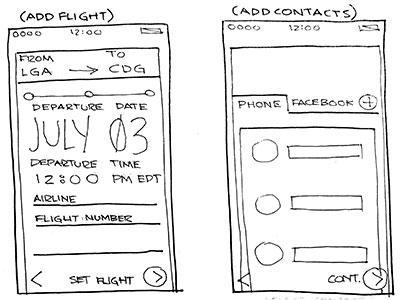 (ADD FLIGHT)
0000 12:00
FROM TO
LGA CDG
DEPARTURE DATE
JULY 03
DEPARTURE TIME
12:00 PM EDT
AIRLINE
FLIGHT NUMBER
SET FLIGHT
(ADD CONTACTS)
0000 12:00
PHONE FACEBOOK
CONT.
SELECT CONTACTS